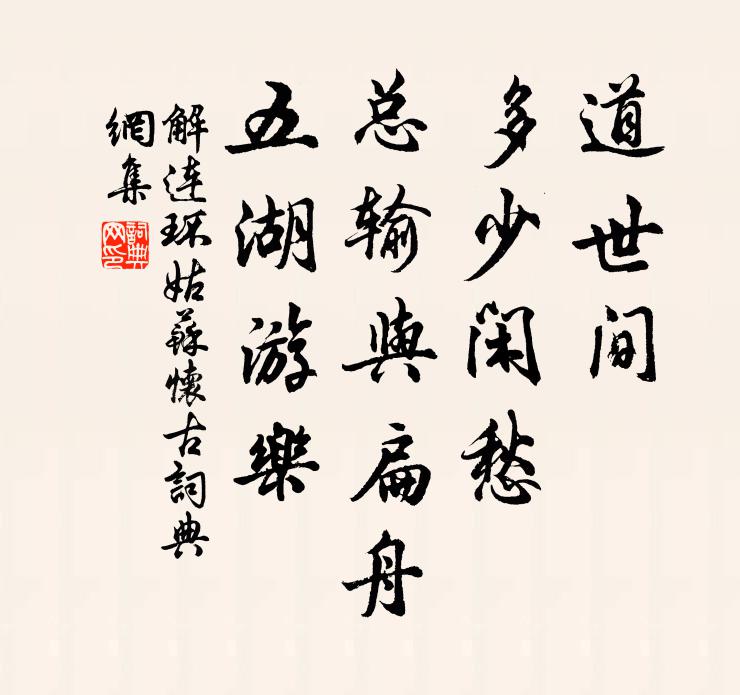 道世间
多少闲愁
总输与扁舟
五湖游乐
解连环姑苏懷古詞典
網集
詞典网印